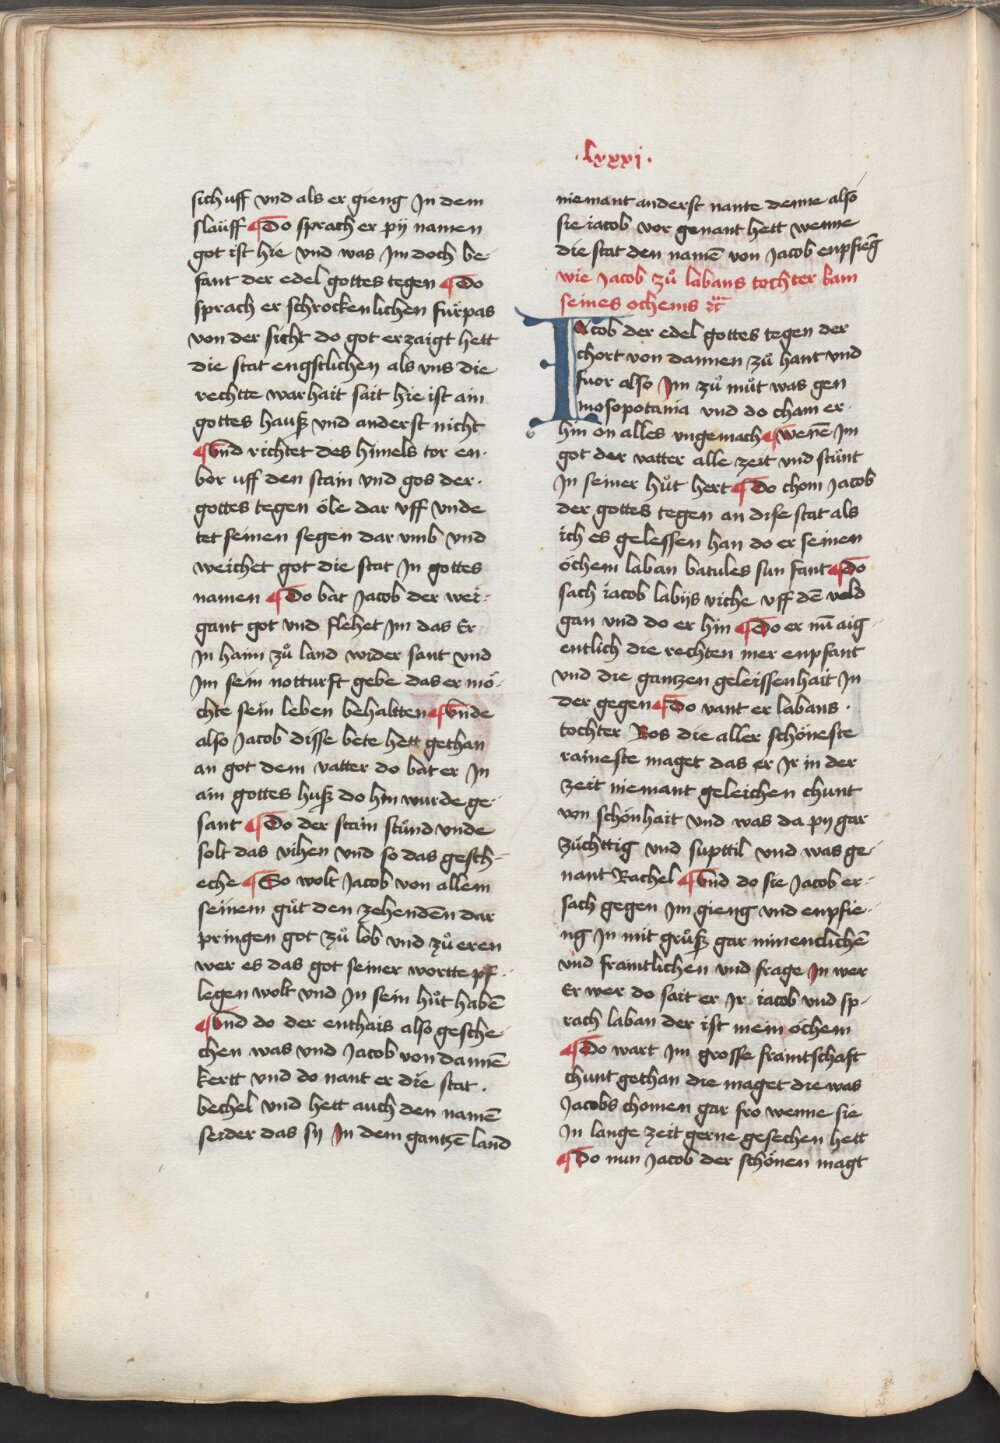 sich uff vnd als er gieng In dem
slauff ¶ Do sprach er pij namen
got ist hie vnd was Im doch be-
kant der edel gottes tegen ¶ Do
sprach er schrockenlichen fürpas
von der sicht do got erzaigt hett
die stat engstlichen als vns die
rechtte warhait sait hie ist ain
gottes hauß vnd anderst nicht
¶ Vnd richtet des himels tor en-
bor uff den stain vnd gos der
gottes tegen öle dar vff vnde
tet seinen segen dar vmb vnd
weichet got die stat In gottes
namen ¶ Do bat Jacob der wei-
gant got vnd flehet Im das Er
In haim zů land wider sant vnd
Im sein notturft gebe das er mö-
chte sein leben behaltten ¶ Vnde
also Jacob disse bete hett gethan
an got dem vatter do bat er In
ain gottes huß do hin wurde ge-
sant ¶ Do der stain stůnd vnde
solt das vihen vnd so das gesch-
eche ¶ So wolt Jacob von allem
seinem gůt den zehenden dar
pringen got zů lob vnd zů eren
wer es das got seiner wortte pf-
legen wolt vnd In sein hůt habē
¶ Vnd do der enthais also gesche-
chen was vnd Jacob von dannē
kertt vnd do nant er die stat
bechel vnd hett auch den namē
seider das sij In dem gantzē land
.lxxxi.
niemant anderst nante denne also
sie iacob vor genant hett wenne
die stat den namē von Jacob enpfieng
wie Jacob zů labans tochter kam
seines ochems
IAcob der edel gottes tegen der
chort von dannen zů hant vnd
fuor also Im zů můt was gen
mosopotania vnd do cham er
hin on alles vngemach ¶ wenē Im
got der vatter alle zeit vnd stůnt
In seiner hůt hert ¶ Do chom Jacob
der gottes tegen an dise stat als
ich es gelessen han do er seinen
öchem laban batules sun fant ¶ Do
sach iacob labijs viche vff dē veld
gan vnd do er hin ¶ Do er nū aig-
entlich die rechten mer enpfant
vnd die gantzen geleissenhait In
der gegen ¶ Do vant er labans
tochter Ros die aller schöneste
raineste maget das er Ir in der
zeit niemant geleichen chunt
von schönhait vnd was da pij gar
züchttig vnd supttil vnd was ge-
nant Rachel ¶ Vnd do sie Jacob er-
sach gegen Im gieng vnd enpfie-
ng In mit grůß gar minenclichē
vnd fraintlichen vnd frage In wer
Er wer do sait er Ir iacob vnd sp-
rach laban der ist mein öchem
¶ Do wart Im grosse fraintschaft
chunt gethan die maget die was
Jacobs chomen gar fro wenne sie
In lange zeit gerne gesechen hett
¶ Do nun Jacob der schönen magt